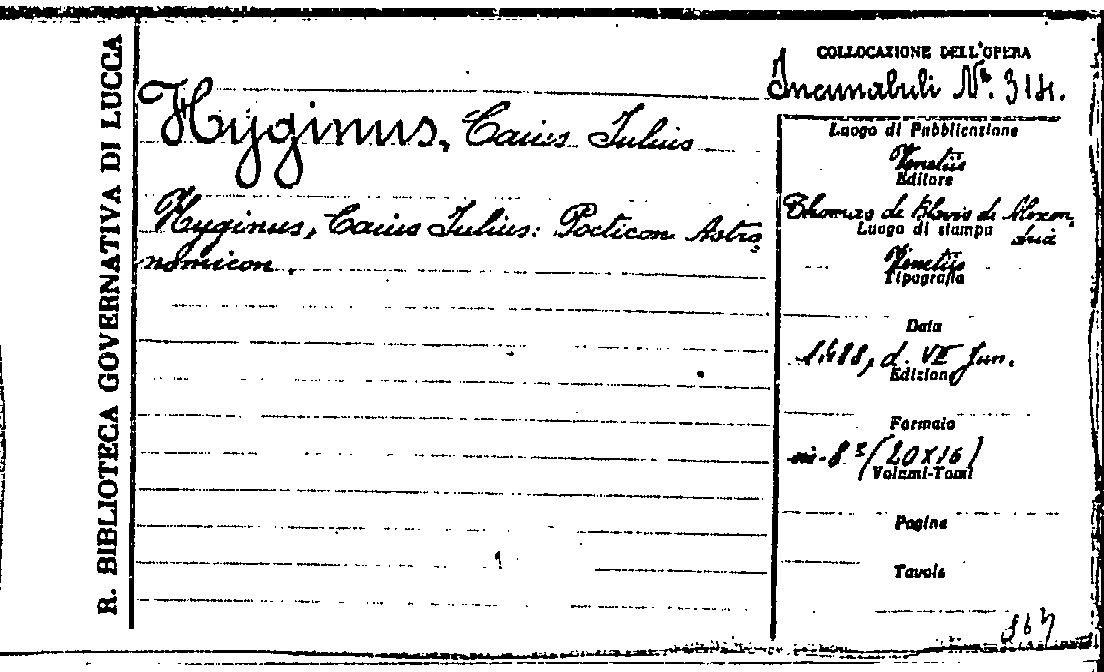 R. BIBLIOTECA GOVERNATIVA DI LUCCA
Hyginus, Caius Iulius
Hyginus, Caius Iulius: Poeticon Astro
nomicon.
COLLOCAZIONE DELL'OPERA
Incunabuli N°. 314.
Luogo di Pubblicazione
Venetiis
Editore
Thomas de Blavis de Alexan
dria
Luogo di stampa
Venetiis
Tipografia
Data
1488, d. VII Jun.
Edizione
Formato
in-8° (20x16)
Volumi-Tomi
Pagine
Tavole